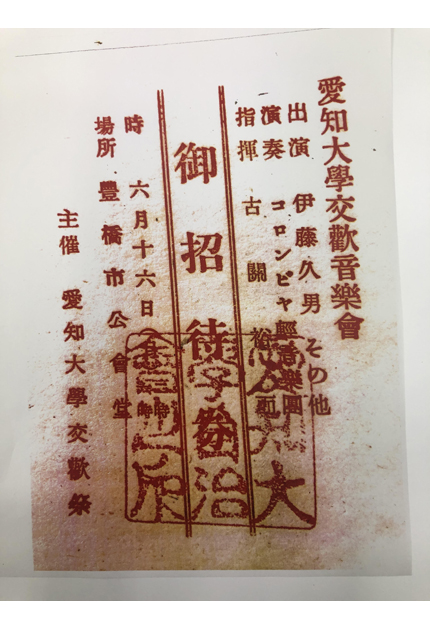 愛知大學交歡音樂會
出演 伊藤久男 その他
演奏 コロンビヤ輕音樂團
指揮 古關裕而
御招待券
時 六月十六日
場所 豊橋市公會堂
主催 愛知大學交歡祭